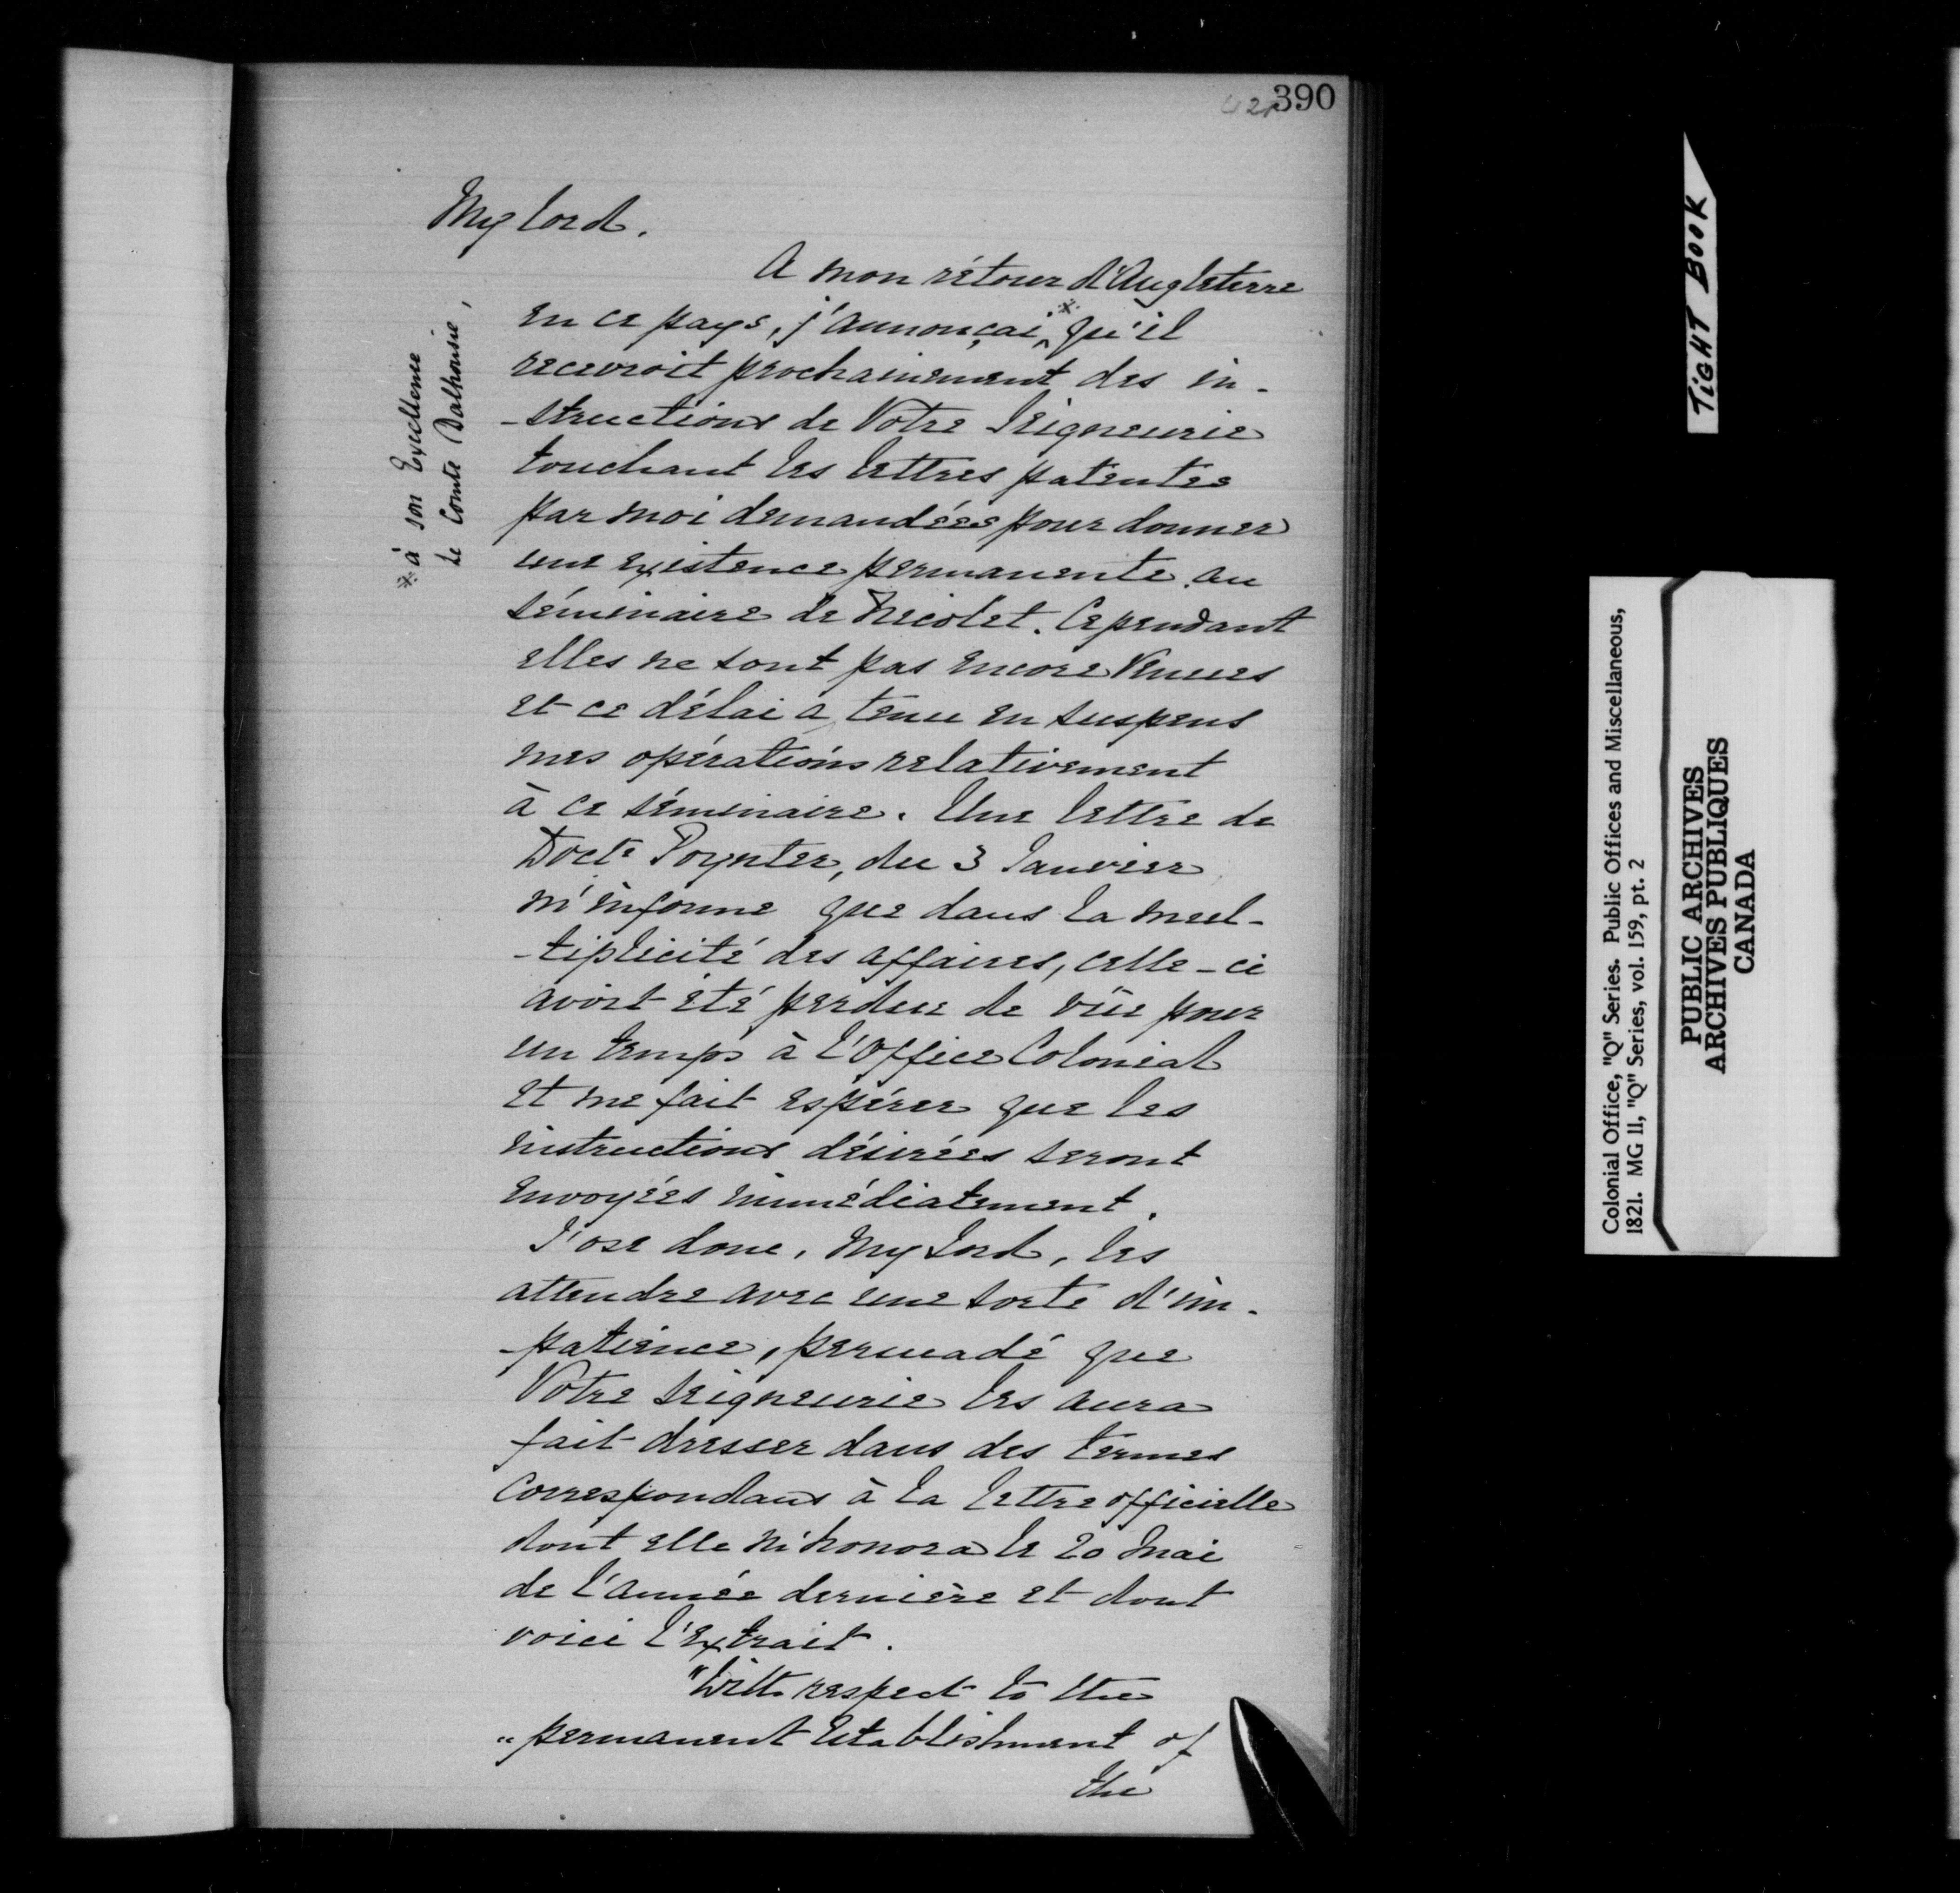 390
My lord.
A mon rétour d'Angleterre
en ce pays, j'annonçai ※ qu'il
recevroit prochainement des in-
-structions de Votre Seigneurie
touchant les lettres patentes
par moi demandées pour donner
une existence permanente au
séminaire de Nicolet. Cependant
elles ne sont pas encore venues
et ce délai a tenu en suspens
mes opérations relativement
à ce séminaire. Une lettre de
Doctr Poynter, du 3 Janvier
m'informe que dans la mul-
-tiplicité des affaires, celle-ci
avoit été perdue de vûe pour
un temps à l'Office Colonial
et me fait espérer que les
instructions désirées seront
envoyées immédiatement.
J'ose donc, My Lord, les
attendre avec une sorte d'im-
-patience, persuadé que
Votre Seigneurie les aura
fait dresser dans des termes
correspondans à la lettre officielle
dont elle m'honora le 20 Mai
de l'année dernière et dont
voici l'extrait.
"With respect to the
"permanent establishment of
the
※ à son Excellence
le Comte Dalhousie,
TIGHT BOOK
Colonial Office, "Q" Series. Public Offices and Miscellaneous,
1821. MG 11, "Q" Series, vol. 159, pt. 2
PUBLIC ARCHIVES
ARCHIVES PUBLIQUES
CANADA